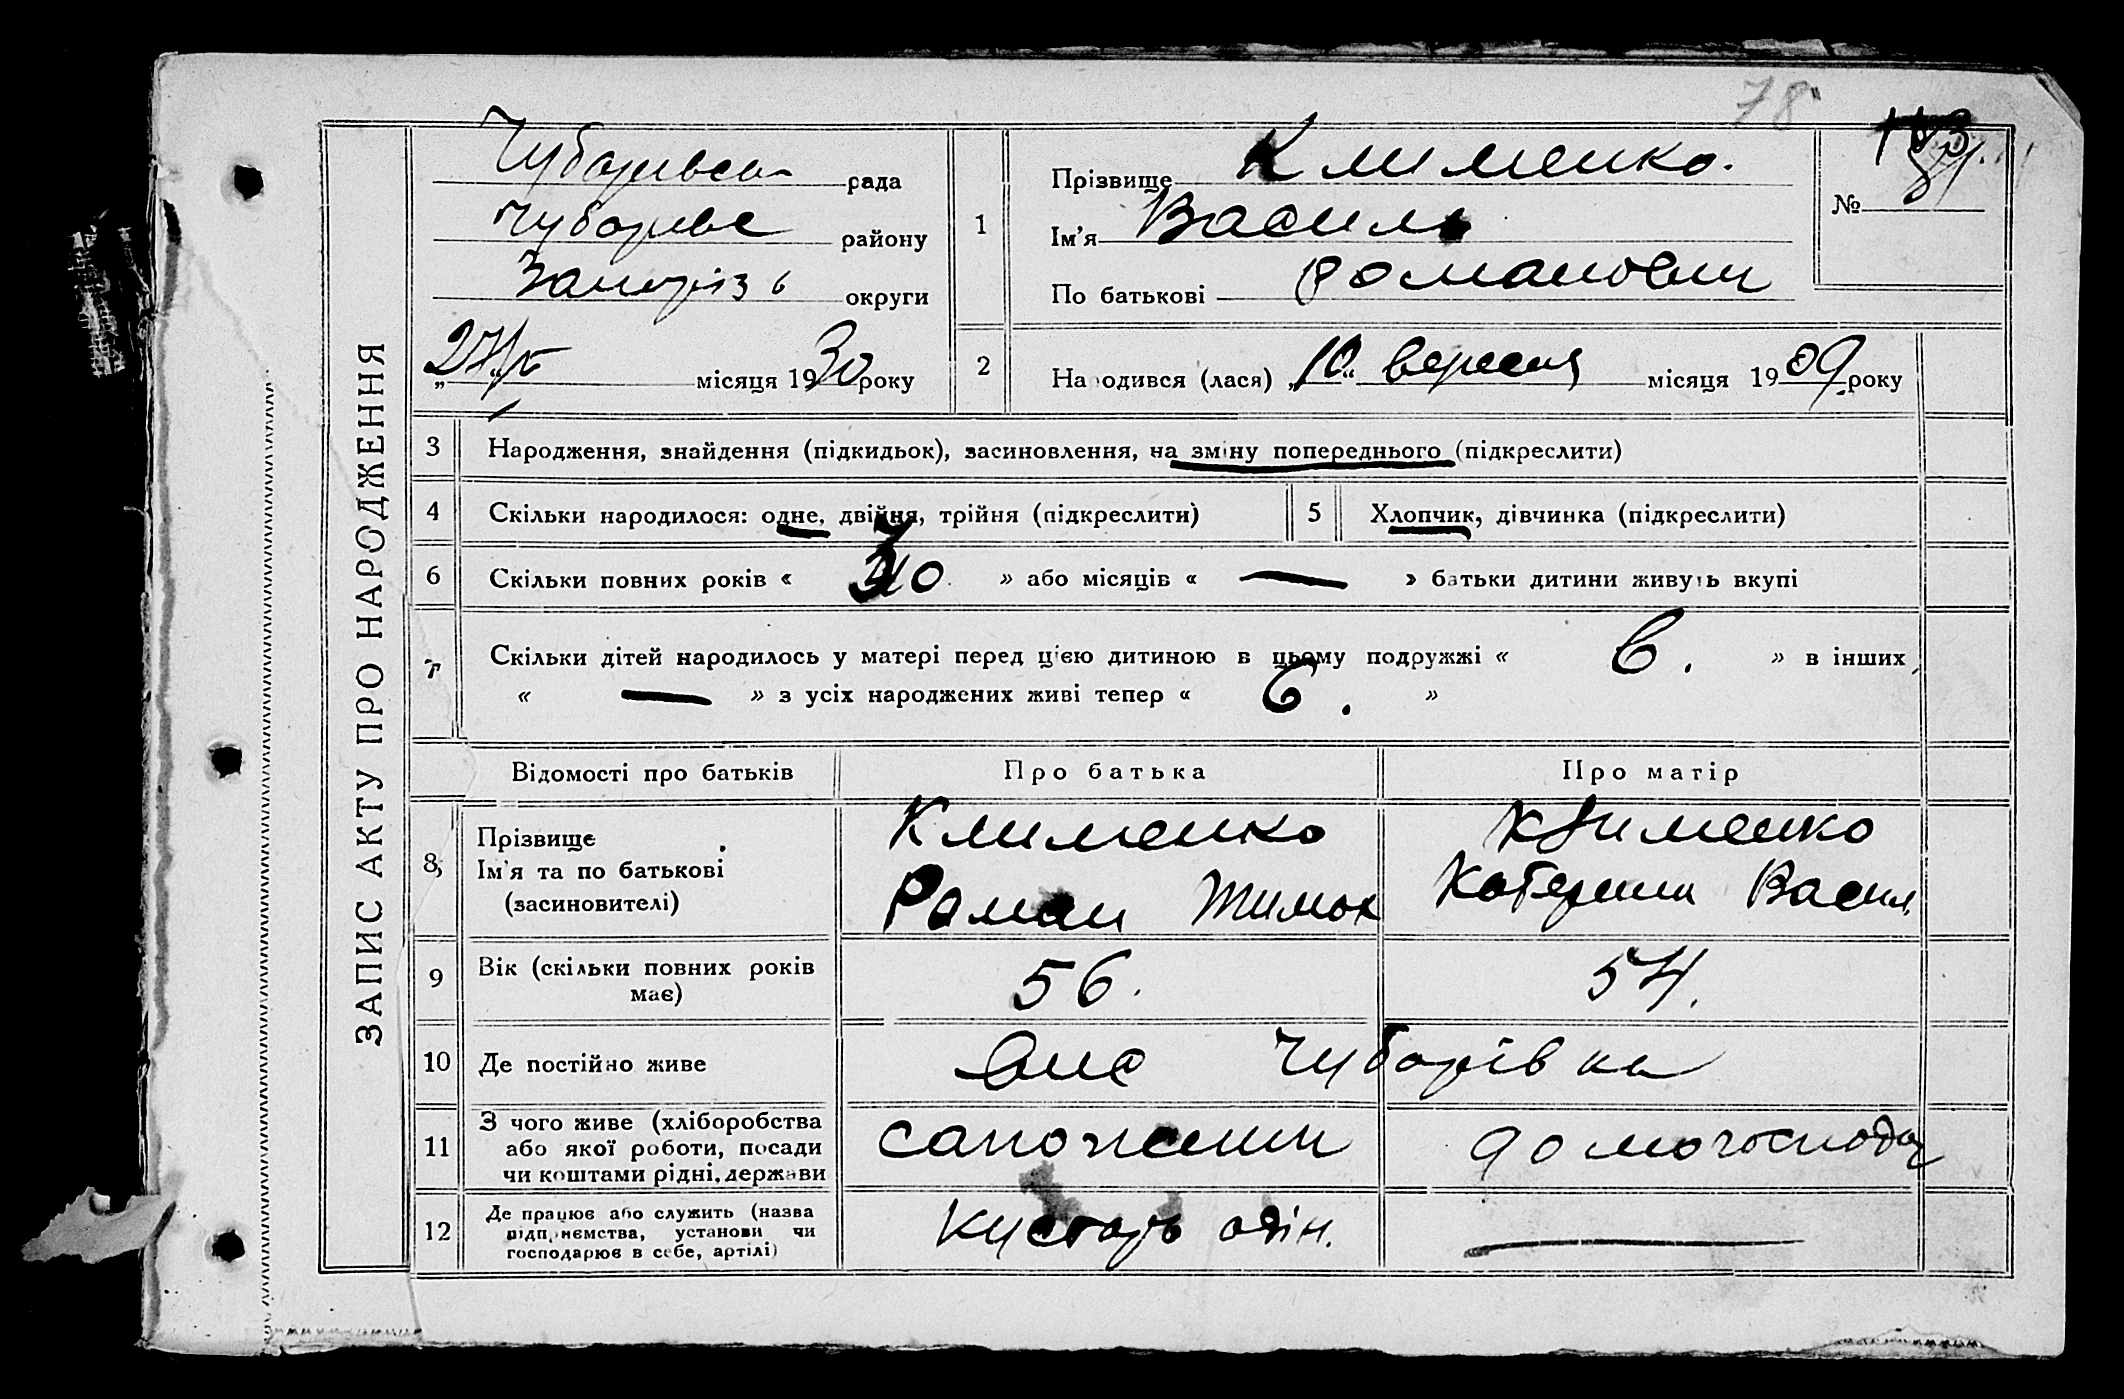 78
ЗАПИС АКТУ ПРО НАРОДЖЕННЯ
Чубарівсь рада
Чубарівс району
Запоріз округи
„27/V місяця 1930 року
1
Прізвище Клименко.
Ім'я Василь
По батькові Романович
№ 81
2
Народився (лася) „10“ вересня місяця 1909 року
3 Народження, знайдення (підкидьок), засиновлення, на зміну попереднього (підкреслити)
4 Скільки народилося: одне, двійня, трійня (підкреслити)
5 Хлопчик, дівчинка (підкреслити)
6 Скільки повних років « » або місяців « — » батьки дитини живуть вкупі
7 Скільки дітей народилось у матері перед цією дитиною в цьому подружжі « 6. » в інших
« — » з усіх народжених живі тепер « 6. »
Відомості про батьків Про батька Про матір
8 Прізвище Клименко Клименко
Ім'я та по батькові Роман Тимох Катерина Васил
(засновителі)
9 Вік (скільки повних років має) 56. 54.
10 Де постійно живе Чубарівка
11 З чого живе (хліборобства
або якої роботи, посади сапожник домогоспод
чи коштами рідні, держави
12 Де працює або служить (назва
підприємства, установи чи Кустарь одін. —
господарює в себе, артілі)